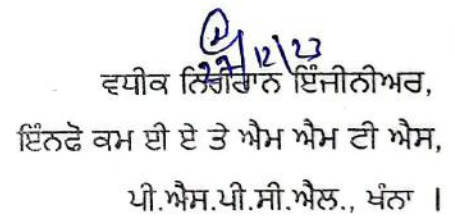 27/12/23
ਵਧੀਕ ਨਿਗਰਾਨ ਇੰਜੀਨੀਅਰ,
ਇੰਨਫੋ ਕਮ ਈ ਏ ਤੇ ਐਮ ਐਮ ਟੀ ਐਸ,
ਪੀ.ਐਸ.ਪੀ.ਸੀ.ਐਲ., ਖੰਨਾ ।